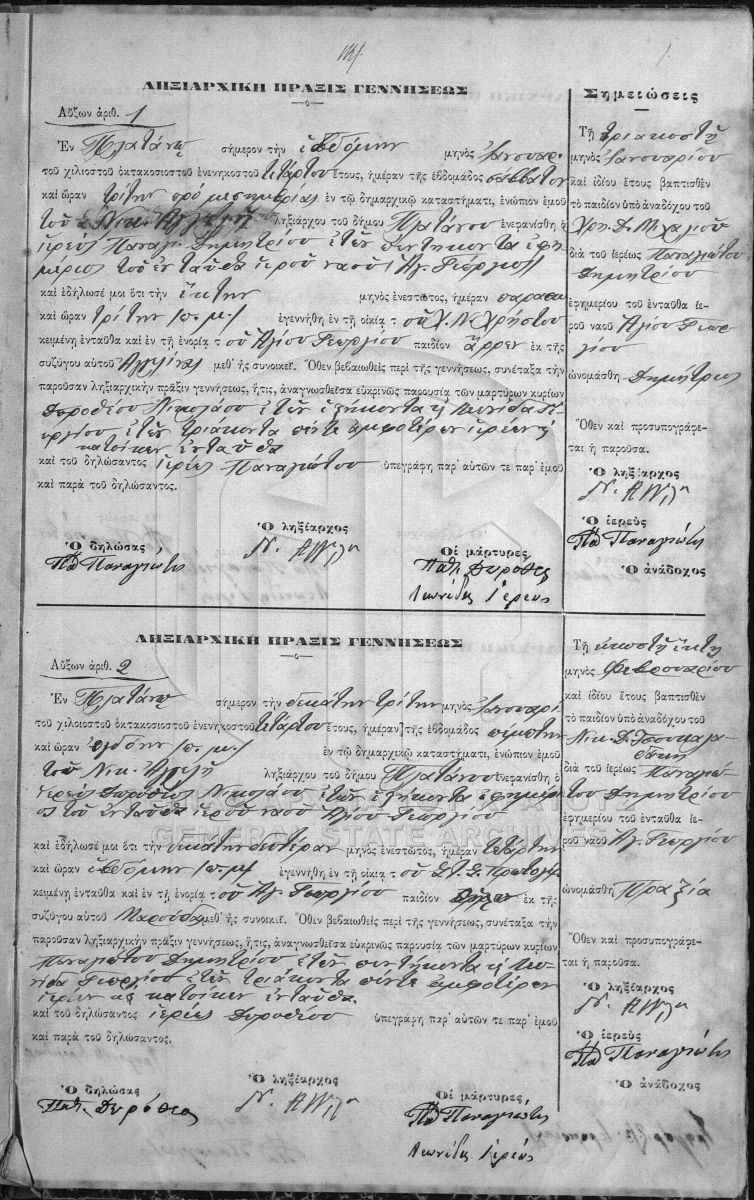 ΛΗΞΙΑΡΧΙΚΗ ΠΡΑΞΙΣ ΓΕΝΝΗΣΕΩΣ
Αὔξων ἀριθ. 1
Ἐν Πλατάνῳ σήμερον τὴν ἑβδόμην μηνὸς Ἰανουαρί
τοῦ χιλιοστοῦ ὀκτακοσιοστοῦ ἐνενηκοστοῦ τετάρτου ἔτους, ἡμέραν τῆς ἑβδομάδος σάββατον
καὶ ὥραν τρίτην πρό μεσημβρίας ἐν τῷ δημαρχικῷ καταστήματι, ἐνώπιον ἐμοῦ
τοῦ Νικ. ληξιάρχου τοῦ δήμου Πλατάνου ἐνεφανίσθη ὁ
ἱερεύς Παναγ. Δημητρίου ἐτῶν πεντήκοντα ἐφη
μέριος τοῦ ἐνταῦθα ἱεροῦ ναοῦ Ἁγ. Γεωργίου
καὶ ἐδήλωσέ μοι ὅτι τὴν ἕκτην μηνὸς ἐνεστῶτος, ἡμέραν παρασκευ
καὶ ὥραν τρίτην π. μ. ἐγεννήθη ἐν τῇ οἰκίᾳ τοῦ Χ. Ν. Χρήστου
κειμένῃ ἐνταῦθα καὶ ἐν τῇ ἐνορίᾳ τοῦ Ἁγίου Γεωργίου παιδίον ἄρρεν ἐκ τῆς
συζύγου αὐτοῦ Ἀγγελίνας μεθ᾽ ἧς συνοικεῖ. Ὅθεν βεβαιωθεὶς περὶ τῆς γεννήσεως, συνέταξα τὴν
παροῦσαν ληξιαρχικὴν πρᾶξιν γεννήσεως, ἥτις, ἀναγνωσθεῖσα εὐκρινῶς παρουσίᾳ τῶν μαρτύρων κυρίων
Δωροθέου Νικολάου ἐτῶν ἑξήκοντα κ Λεωνίδα Γε
ωργίου ἐτῶν τριάκοντα πέντε ἀμφοτέρων ἱερέων κ
κατοίκων ἐνταῦθα
καὶ τοῦ δηλώσαντος ἱερέως Παναγιώτου ὑπεγράφη παρ᾽ αὐτῶν τε παρ᾽ ἐμοῦ
καὶ παρὰ τοῦ δηλώσαντος.
Ὁ δηλώσας Ὁ ληξίαρχος Οἱ μάρτυρες,
Πα Παναγιώτης Παπ. Δωρόθεος
Λεωνίδας Ἱερεύς
Σημειώσεις
Τῇ τριακοστῇ
μηνὸς Ἰανουαρίου
καὶ ἰδίου ἔτους βαπτισθὲν
τὸ παιδίον ὑπὸ ἀναδόχου τοῦ
Χρ. Δ. Μιχαλιοῦ
διὰ τοῦ ἱερέως Παναγιώτου
Δημητρίου
ἐφημερίου τοῦ ἐνταῦθα ἱε-
ροῦ ναοῦ Ἁγίου Γεωρ
γίου
ὠνομάσθη Δημήτριος
Ὅθεν καὶ προσυπογράφε-
ται ἡ παροῦσα.
Ὁ ληξίαρχος
Ὁ ἱερεὺς
Πα Παναγιώτης
Ὁ ἀνάδοχος
ΛΗΞΙΑΡΧΙΚΗ ΠΡΑΞΙΣ ΓΕΝΝΗΣΕΩΣ
Αὔξων ἀριθ. 2
Ἐν Πλατάνῳ σήμερον τὴν δεκάτην τρίτην μηνὸς Ἰανουαρί
τοῦ χιλιοστοῦ ὀκτακοσιοστοῦ ἐνενηκοστοῦ τετάρτου ἔτους, ἡμέραν τῆς ἑβδομάδος πέμπτην
καὶ ὥραν ὀγδόην π. μ. ἐν τῷ δημαρχικῷ καταστήματι, ἐνώπιον ἐμοῦ
τοῦ Νικ. ληξιάρχου τοῦ δήμου Πλατάνου ἐνεφανίσθη ὁ
ἱερεύς Δωρόθεος Νικολάου ἐτῶν ἑξήκοντα ἐφημέρι
ος τοῦ ἐνταῦθα ἱεροῦ ναοῦ Ἁγίου Γεωργίου
καὶ ἐδήλωσέ μοι ὅτι τὴν δεκάτην δευτέραν μηνὸς ἐνεστῶτος, ἡμέραν τετάρτην
καὶ ὥραν ἑβδόμην π. μ. ἐγεννήθη ἐν τῇ οἰκίᾳ τοῦ
κειμένῃ ἐνταῦθα καὶ ἐν τῇ ἐνορίᾳ τοῦ Ἁγ. Γεωργίου παιδίον θῆλυ ἐκ τῆς
συζύγου αὐτοῦ Μαρούδας μεθ᾽ ἧς συνοικεῖ. Ὅθεν βεβαιωθεὶς περὶ τῆς γεννήσεως, συνέταξα τὴν
παροῦσαν ληξιαρχικὴν πρᾶξιν γεννήσεως, ἥτις, ἀναγνωσθεῖσα εὐκρινῶς παρουσίᾳ τῶν μαρτύρων κυρίων
Παναγιώτου Δημητρίου ἐτῶν πεντήκοντα κ Λεω
νίδα Γεωργίου ἐτῶν τριάκοντα πέντε ἀμφοτέρων
ἱερέων κ κατοίκων ἐνταῦθα
καὶ τοῦ δηλώσαντος ἱερέως Δωροθέου ὑπεγράφη παρ᾽ αὐτῶν τε παρ᾽ ἐμοῦ
καὶ παρὰ τοῦ δηλώσαντος.
Ὁ δηλώσας Ὁ ληξίαρχος Οἱ μάρτυρες,
Παπ. Δωρόθεος Πα Παναγιώτης
Λεωνίδας Ἱερεύς
Τῇ εἰκοστῇ ἕκτῃ
μηνὸς Φεβρουαρίου
καὶ ἰδίου ἔτους βαπτισθὲν
τὸ παιδίον ὑπὸ ἀναδόχου τοῦ
Νικ. Δ.
διὰ τοῦ ἱερέως Παναγιώ
του Δημητρίου
ἐφημερίου τοῦ ἐνταῦθα ἱε-
ροῦ ναοῦ Ἁγ. Γεωργίου
ὠνομάσθη Πραξία
Ὅθεν καὶ προσυπογράφε-
ται ἡ παροῦσα.
Ὁ ληξίαρχος
Ὁ ἱερεὺς
Πα Παναγιώτης
Ὁ ἀνάδοχος
GENERAL STATE ARCHIVES